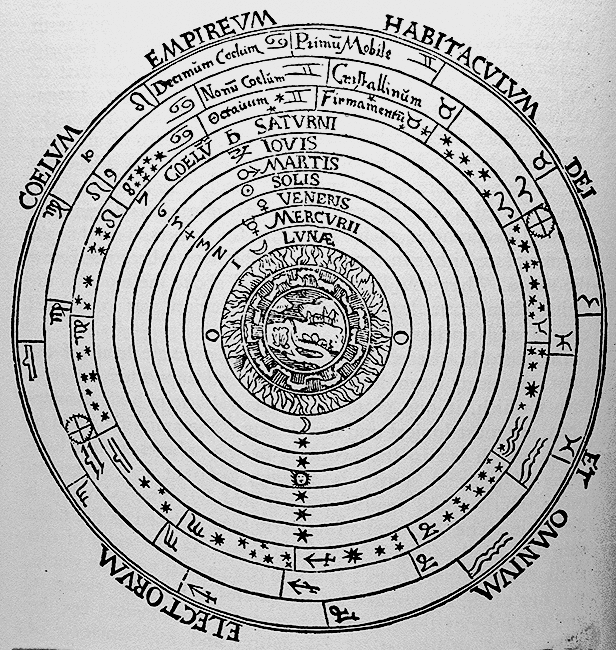 COELVM EMPIREVM HABITACVLVM DEI ET OMNIVM ELECTORVM
Decimum Coelum Primũ Mobile
Nonũ Coelum Cristallinum
Octauum Firmamentũ
8
9
7
COELV SATVRNI
6
IOVIS
5
MARTIS
4
SOLIS
3
VENERIS
2
MERCVRII
1
LVNÆ